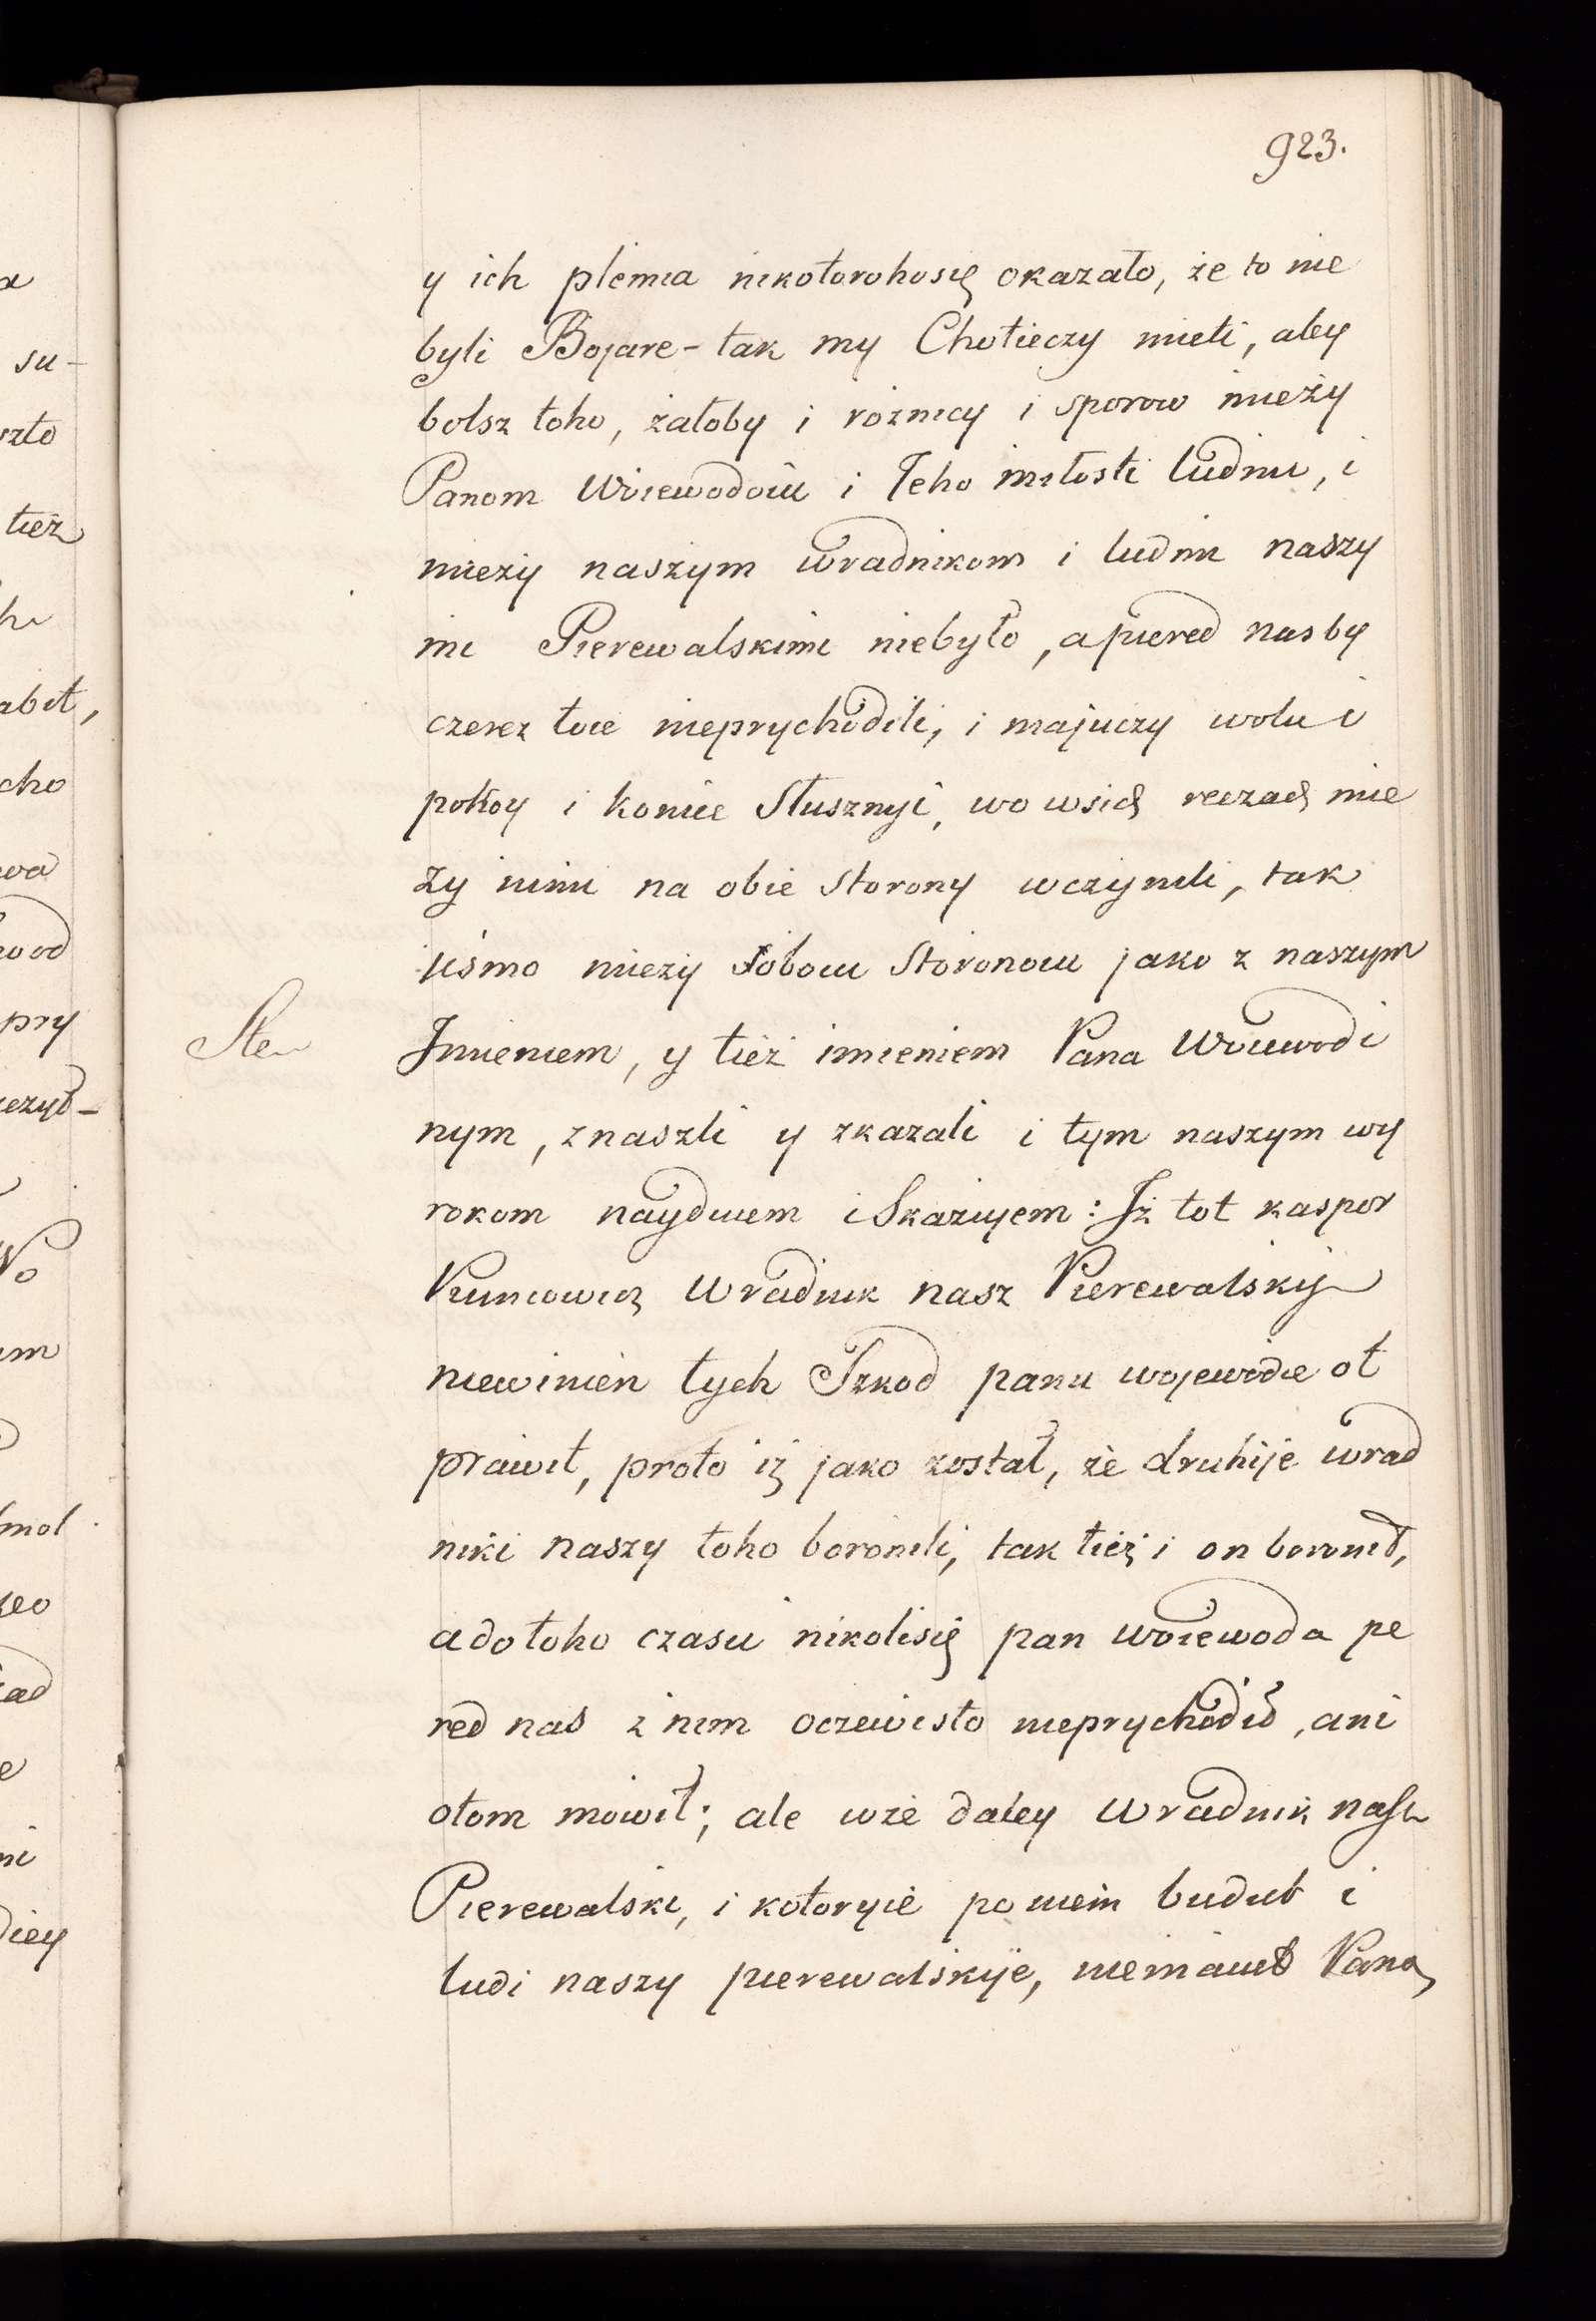 923.
y ich plemia nikotorohosię okazało, że to nie
byli Bojare - tak my Chotieczy mieli, aby
bolsz toho, żałoby i roznicy i sporow mieży
Panom Woiewodoiu i Jeho miłosti ludmi, i
mieży naszym wradnikom i ludmi naszy
mi Pierewalskimi niebyło, a piered nas by
czerez toie nieprychodili, i majuczy wolu i
pokoy i koniec Słusznyi, wo wsich reczach mie
ży nimi na obie Storony wczynili, tak
jeśmo mieży soboiu Storonoiu jako z naszym
Imieniem, y tież imieniem Pana Woiewodi
nym, znaszli y zkazali i tym naszym wy
rokom naydujem i Skazujem: Iż tot kaspor
Kuncowicz Wradnik nasz Pierewalskij
niewinien tych Szkod panu wojewodie ot
prawił, proto iż jako został, że druhije wrad
niki naszy toho boronili, tak tież i on boronił,
a do toho czasu nikolisię pan woiewoda pe
red nas z nim oczewisto nieprychodił, ani
o tom mowił; ale wże daley Wradnik nasz
Pierewalski, i kotoryie po niem budut i
ludi naszy pierewalskije, niemaiut Pana